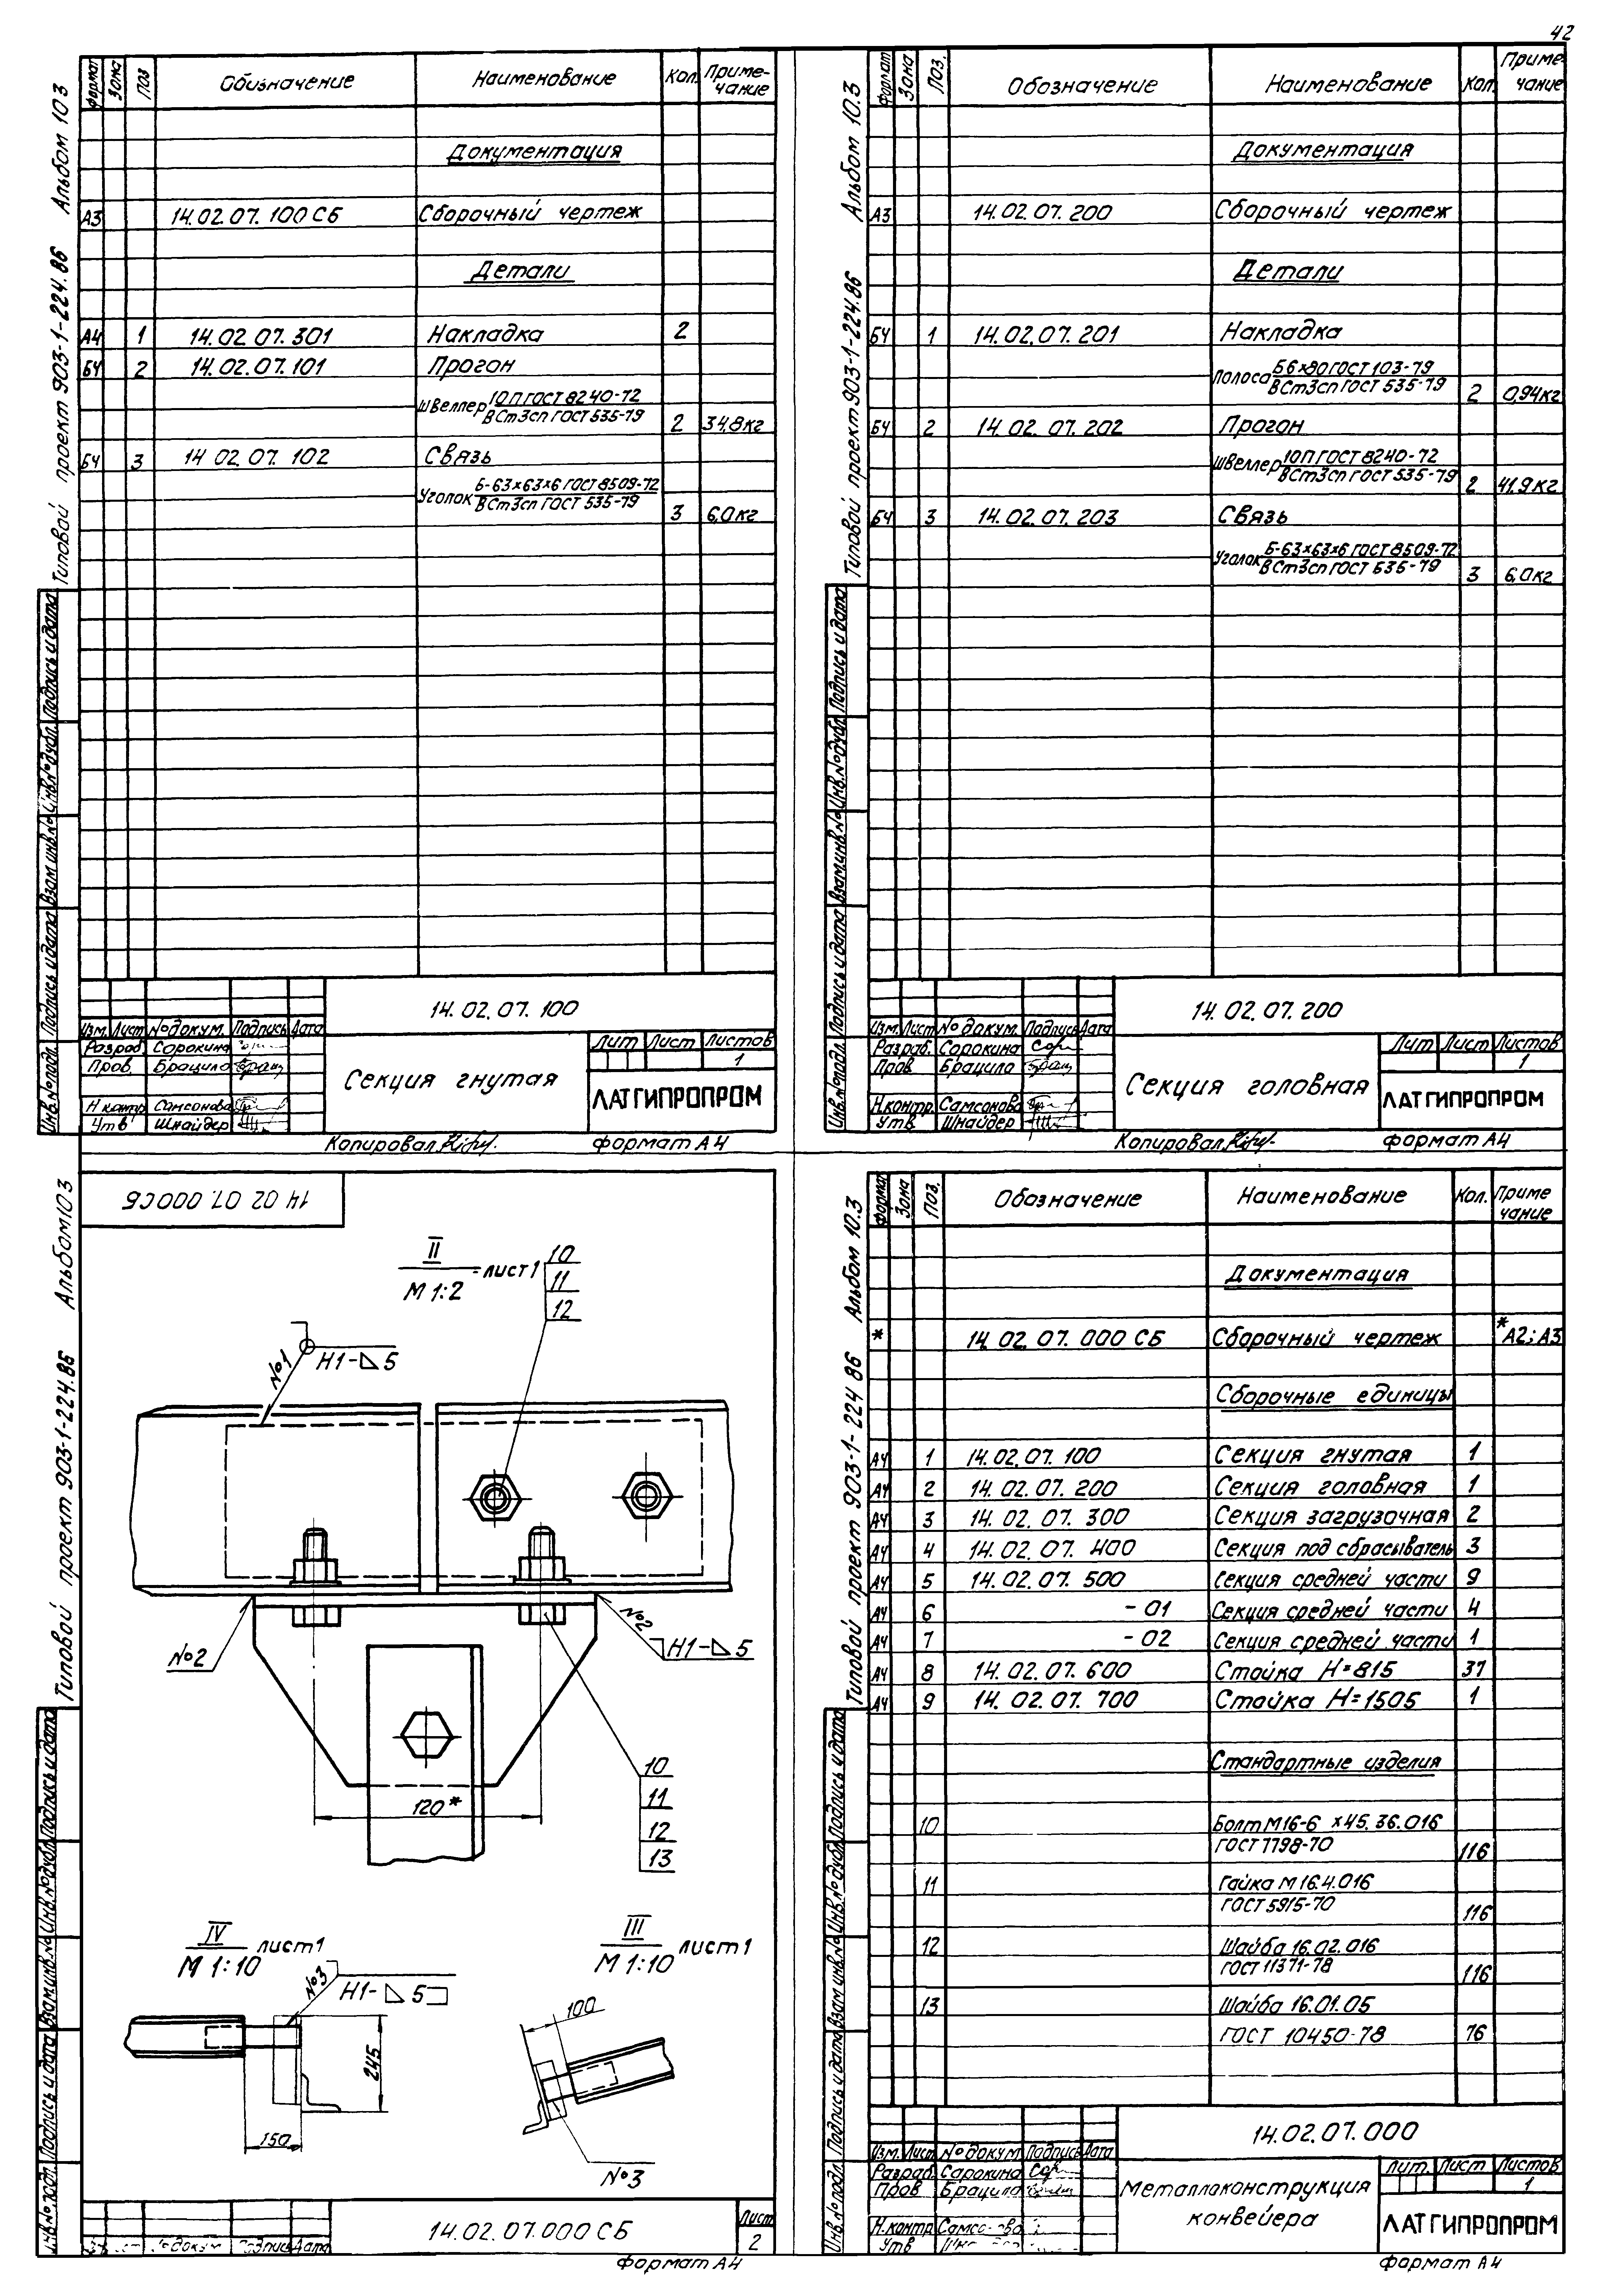 42
Типовой проект 903-1-224.86 Альбом 10 3
Формат Зона Поз Обозначение Наименование Кол. Приме-чание
Документация
А3 14.02.07.100 СБ Сборочный чертеж
Детали
А4 1 14.02.07.301 Накладка 2
БЧ 2 14.02.07.101 Прогон
Швеллер 10П ГОСТ 8240-72
ВСт3сп ГОСТ 535-79 2 34,8кг
БЧ 3 14 02.07.102 Связь
Уголок Б-63х63х6 ГОСТ 8509-72
ВСт3сп ГОСТ 535-79 3 6,0кг
Подпись и дата
Инв.№дубл.
Взам.инв.№
Подпись и дата
Инв.№подл.
14.02.07.100
Изм. Лист №докум. Подпись Дата
Разраб. Сорокина
Пров. Брацило
Н контр Самсонова
Утв Шнайдер
Секция гнутая
Лит Лист Листов
1
ЛАТГИПРОПРОМ
Копировал формат А4
Типовой проект 903-1-224.86 Альбом 10.3
Формат Зона Поз. Обозначение Наименование Кол. Приме чание
Документация
А3 14.02.07.200 Сборочный чертеж
Детали
БЧ 1 14.02.07.201 Накладка
Полоса Б6х90 ГОСТ 103-79
ВСт3сп ГОСТ 535-79 2 0,94кг
БЧ 2 14.02.07.202 Прогон
Швеллер 10П ГОСТ 8240-72
ВСт3сп ГОСТ 535-79 2 41,9кг
БЧ 3 14.02.07.203 Связь
Уголок Б-63х63х6 ГОСТ 8509-72
ВСт3сп ГОСТ 535-79 3 6,0кг
Подпись и дата
Инв.№дубл.
Взам.инв.№
Подпись и дата
Инв.№подл.
14.02.07.200
Изм. Лист №докум. Подпись Дата
Разраб. Сорокина
Пров Брацило
Н.контр. Самсонова
Утв Шнайдер
Секция головная
Лит Лист Листов
1
ЛАТГИПРОПРОМ
Копировал формат А4
Типовой проект 903-1-224.86 Альбом 10 3
14 02 07. 000СБ
II
М 1:2 -лист 1
10
11
12
№1
Н1-◺5
№2
№2
Н1-◺5
120*
10
11
12
13
IV
М 1:10 лист 1
№3
Н1-◺5
245
150
III
М 1:10 лист 1
100
№3
Подпись и дата
Инв.№дубл.
Взам инв.№
Подпись и дата
Инв.№подл.
№докум Подпись Дата
14.02.07.000 СБ
Лист
2
Формат А4
Типовой проект 903-1-224 86 Альбом 10.3
Формат Зона Поз. Обозначение Наименование Кол. Приме чание
Документация
* 14.02.07.000 СБ Сборочный чертеж *А2; А3
Сборочные единицы
А4 1 14.02.07.100 Секция гнутая 1
А4 2 14.02.07.200 Секция головная 1
А4 3 14.02.07.300 Секция загрузочная 2
А4 4 14.02.07.400 Секция под сбрасыватель 3
А4 5 14.02.07.500 Секция средней части 9
А4 6 -01 Секция средней части 4
А4 7 -02 Секция средней части 1
А4 8 14.02.07.600 Стойка Н=815 37
А4 9 14.02.07.700 Стойка Н=1505 1
Стандартные изделия
10 Болт М16-6 х45.36.016
ГОСТ 7798-70 116
11 Гайка М 16.4.016
ГОСТ 5915-70 116
12 Шайба 16.02.016
ГОСТ 11371-78 116
13 Шайба 16.01.05
ГОСТ 10450-78 76
Подпись и дата
Инв.№дубл.
Взам инв.№
Подпись и дата
Инв.№подл.
14.02.07.000
Изм. Лист №докум Подпись Дата
Разраб. Сорокина
Пров Брацило
Н.контр
Утв
Металлоконструкция
конвейера
Лит. Лист Листов
1
ЛАТГИПРОПРОМ
Формат А4